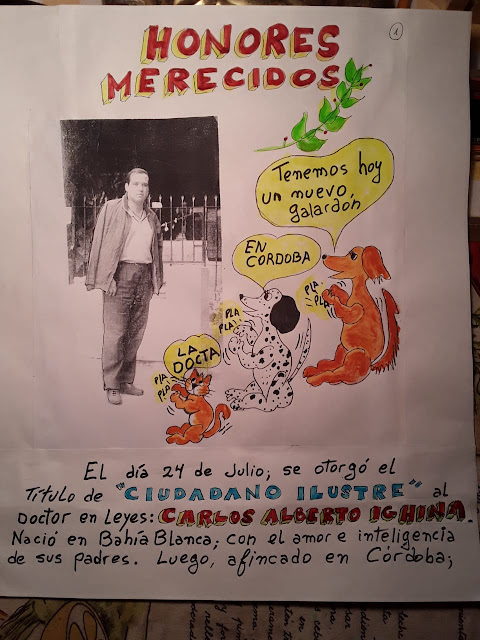 1
HONORES
MERECIDOS
Tenemos hoy
un nuevo
galardón
EN
CORDOBA
PLA-
PLA
PLA
PLA
LA
DOCTA
PLA-
PLA
El día 24 de Julio; se otorgó el
Título de "CIUDADANO ILUSTRE" al
Doctor en Leyes: CARLOS ALBERTO IGHINA.
Nació en Bahía Blanca; con el amor e inteligencia
de sus padres. Luego, afincado en Córdoba;